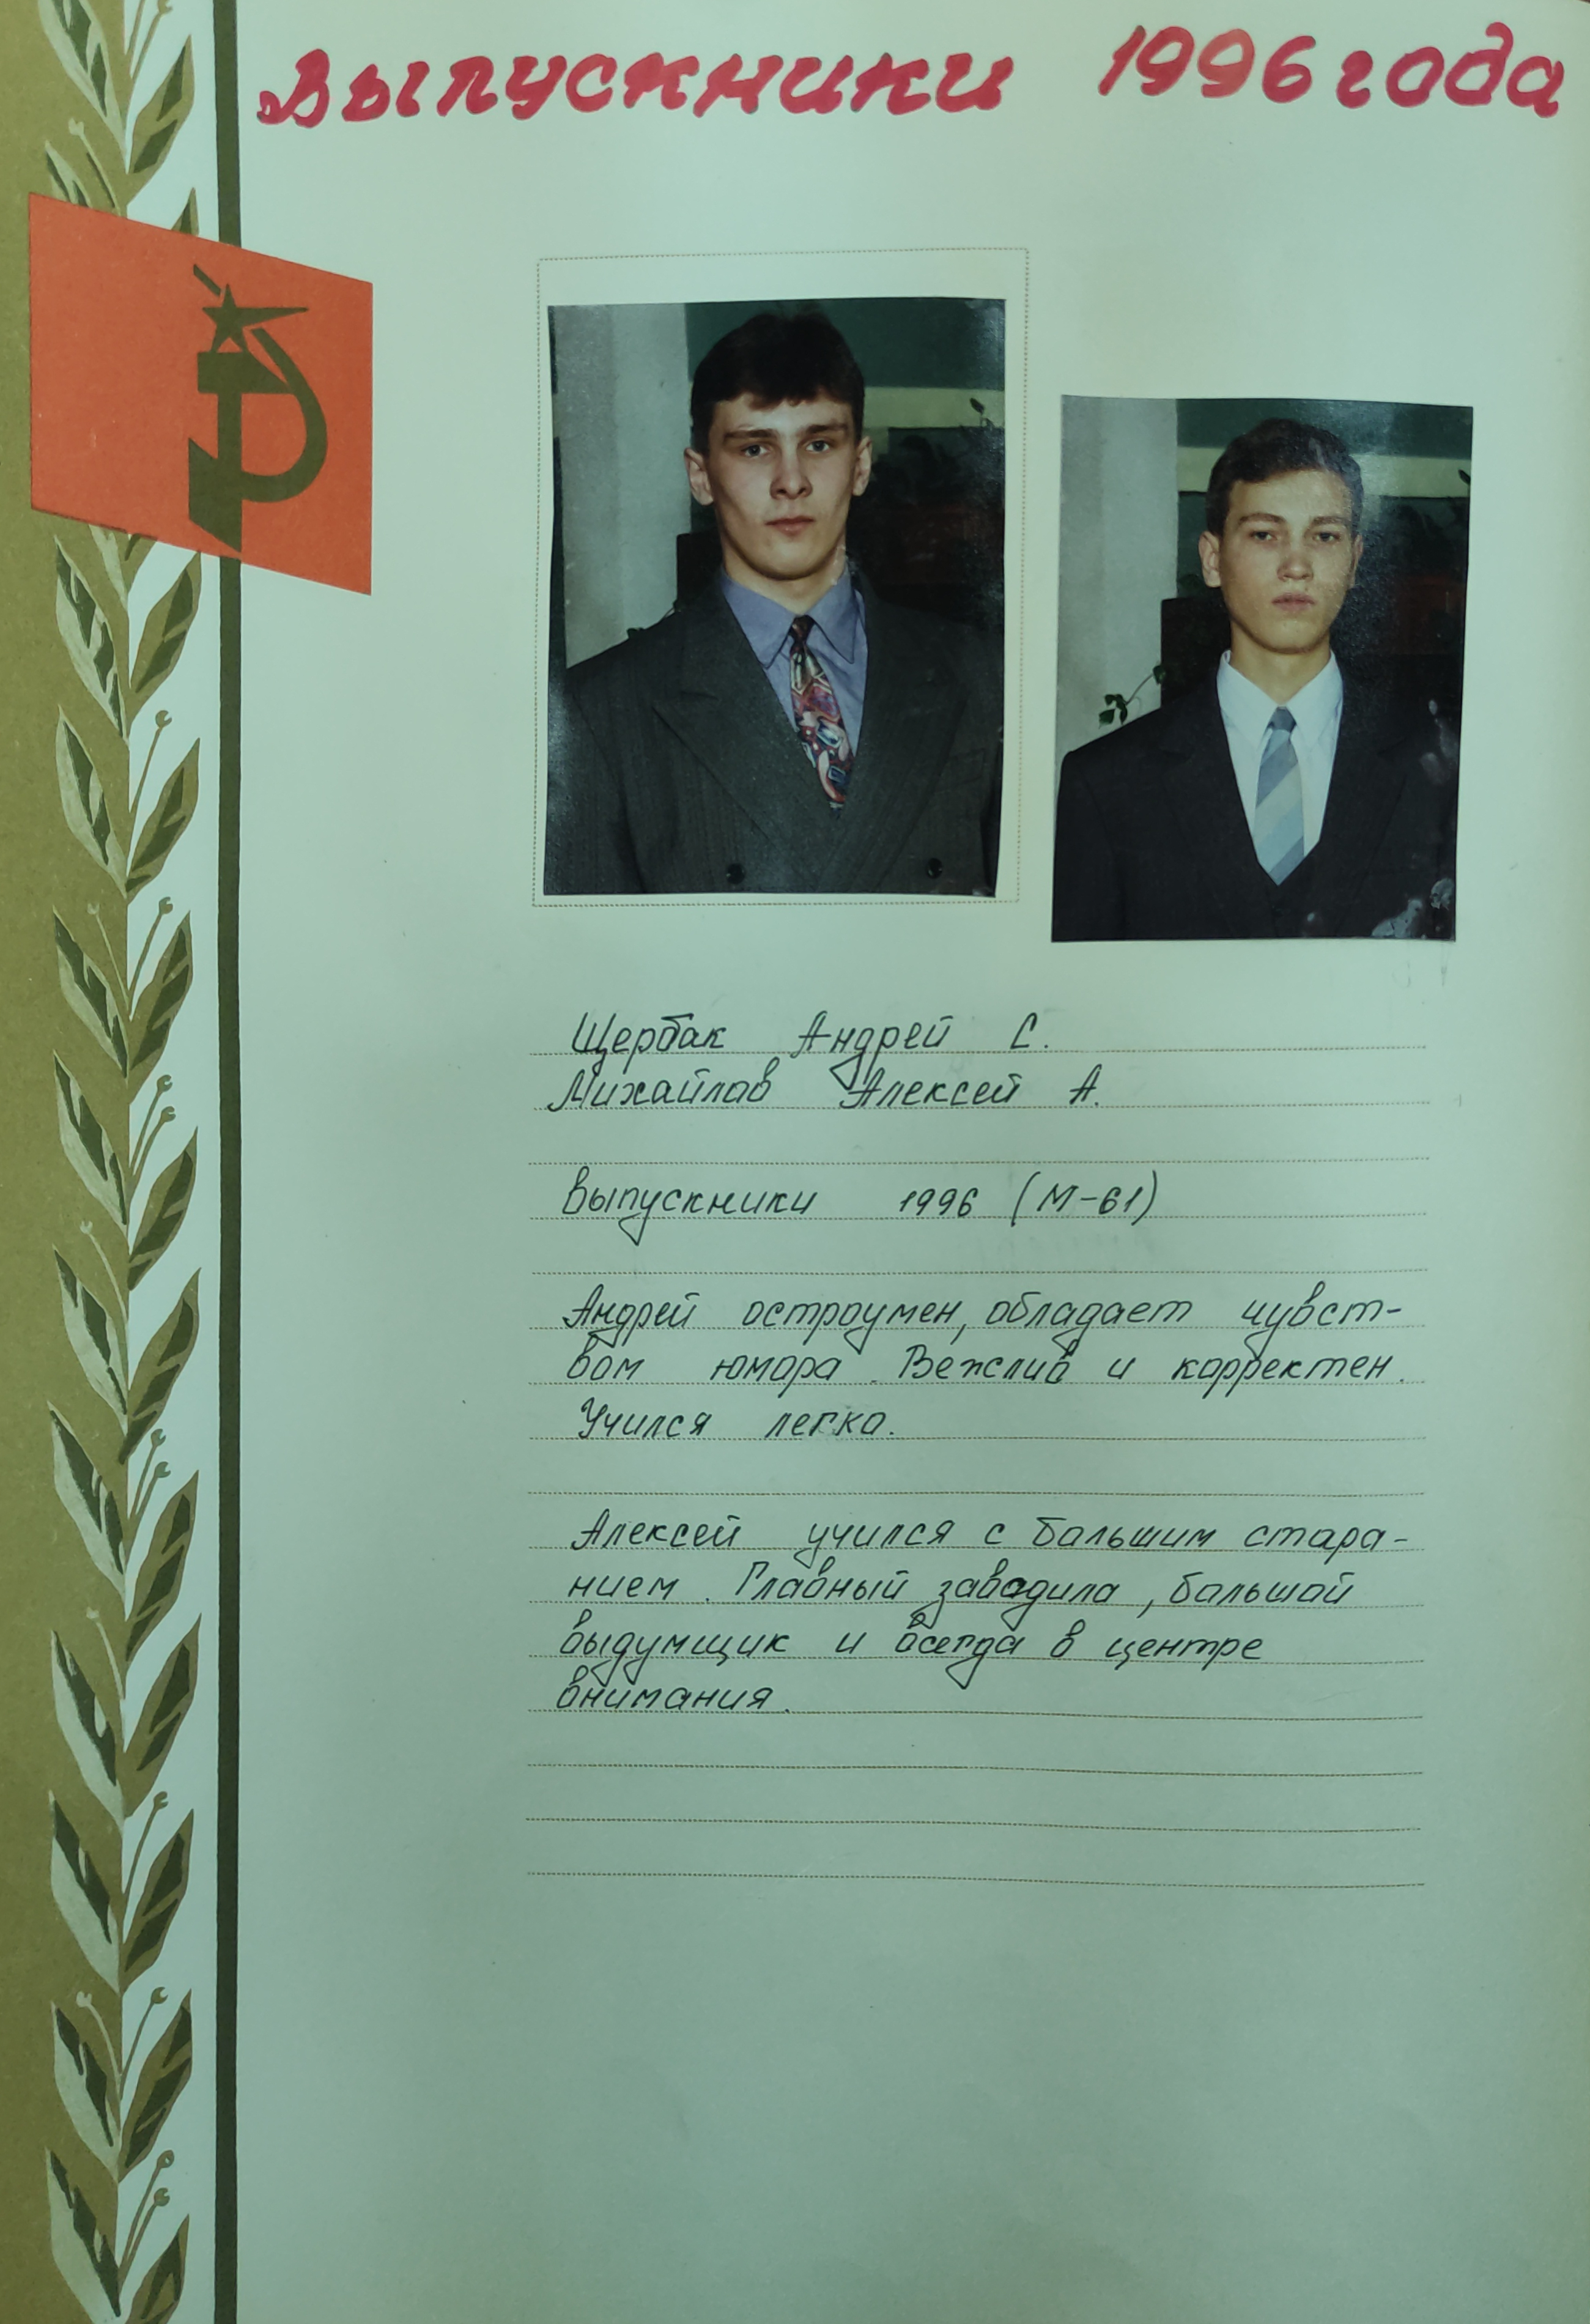 Выпускники 1996 года
Щербак Андрей С.
Михайлов Алексей А.
Выпускники 1996 (М-61)
Андрей остроумен, обладает чувст-
вом юмора. Вежлив и корректен.
Учился легко.
Алексей учился с большим стара-
нием. Главный заводила, большой
выдумщик и всегда в центре
внимания.